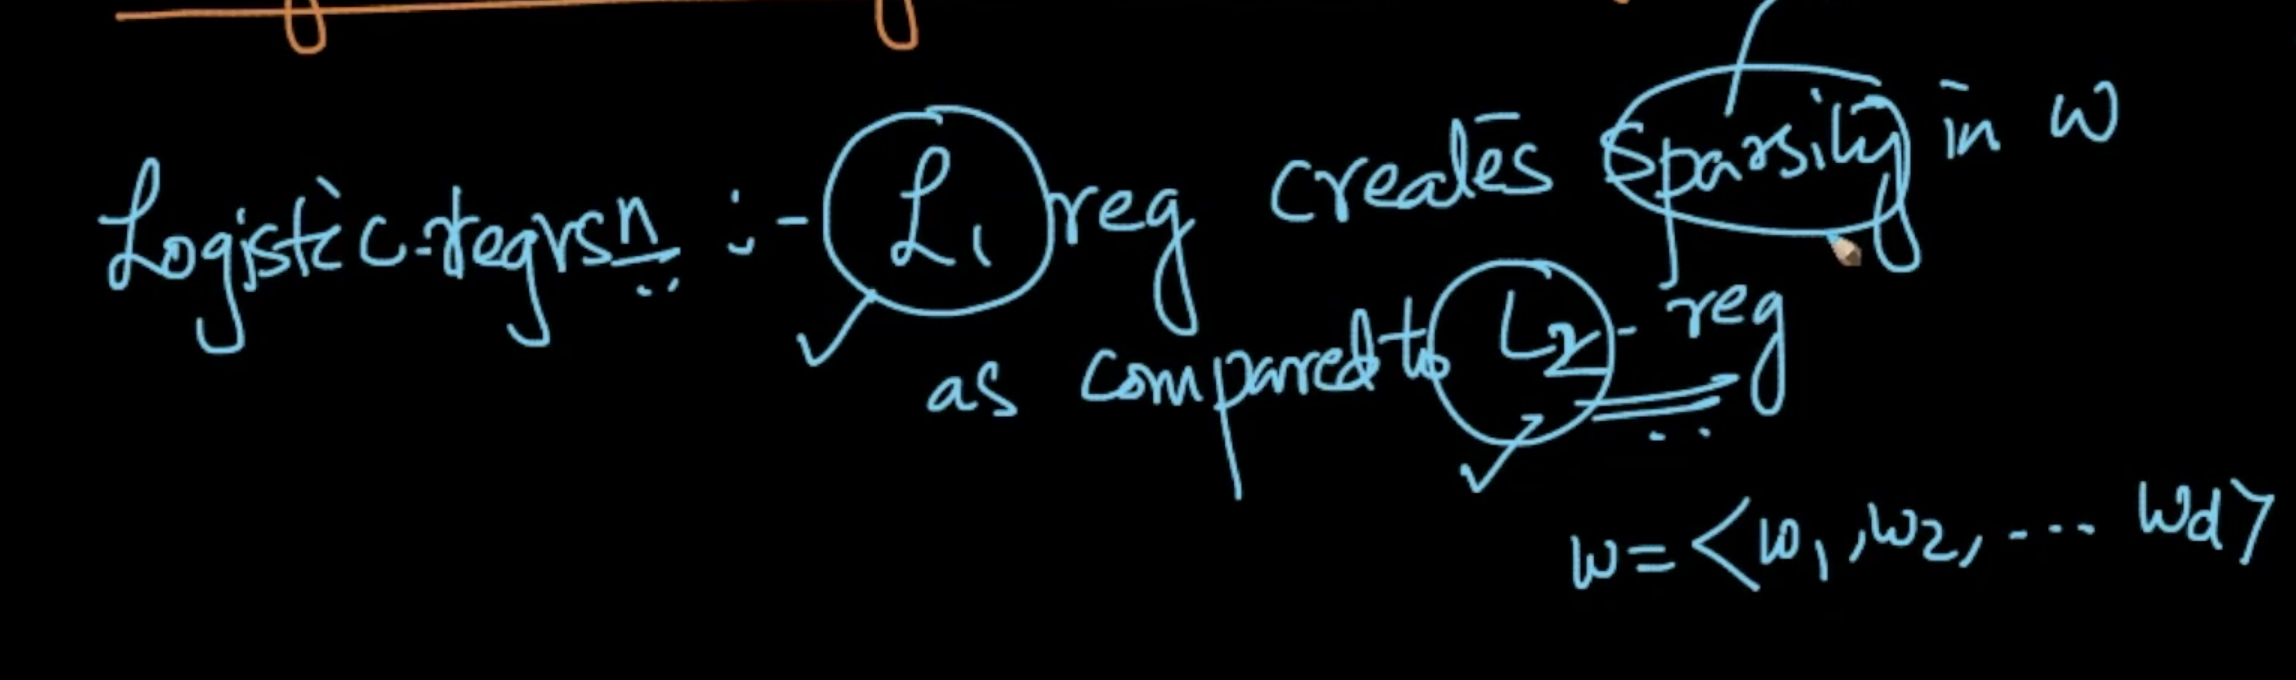 Logistic-regrsn :- L1 reg creates sparsity in w
as compared to L2-reg
w = <w1, w2, ... wd>